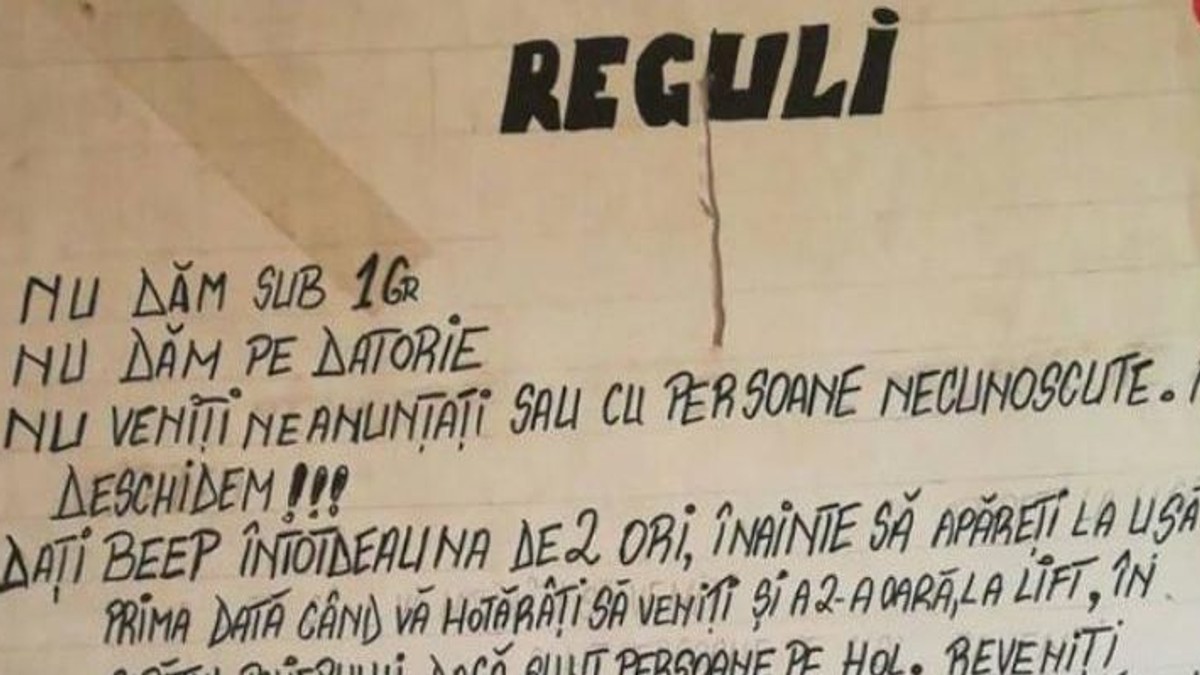 REGULI
NU DĂM SUB 1GR
NU DĂM PE DATORIE
NU VENIȚI NEANUNȚAȚI SAU CU PERSOANE NECUNOSCUTE.
DESCHIDEM!!!
DAȚI BEEP ÎNTOTDEAUNA DE 2 ORI, ÎNAINTE SĂ APĂREȚI LA UȘĂ
PRIMA DATĂ CÂND VĂ HOTĂRÂȚI SĂ VENIȚI ȘI A 2-A OARĂ, LA LIFT, ÎN
DACĂ SUNT PERSOANE PE HOL. REVENIȚI